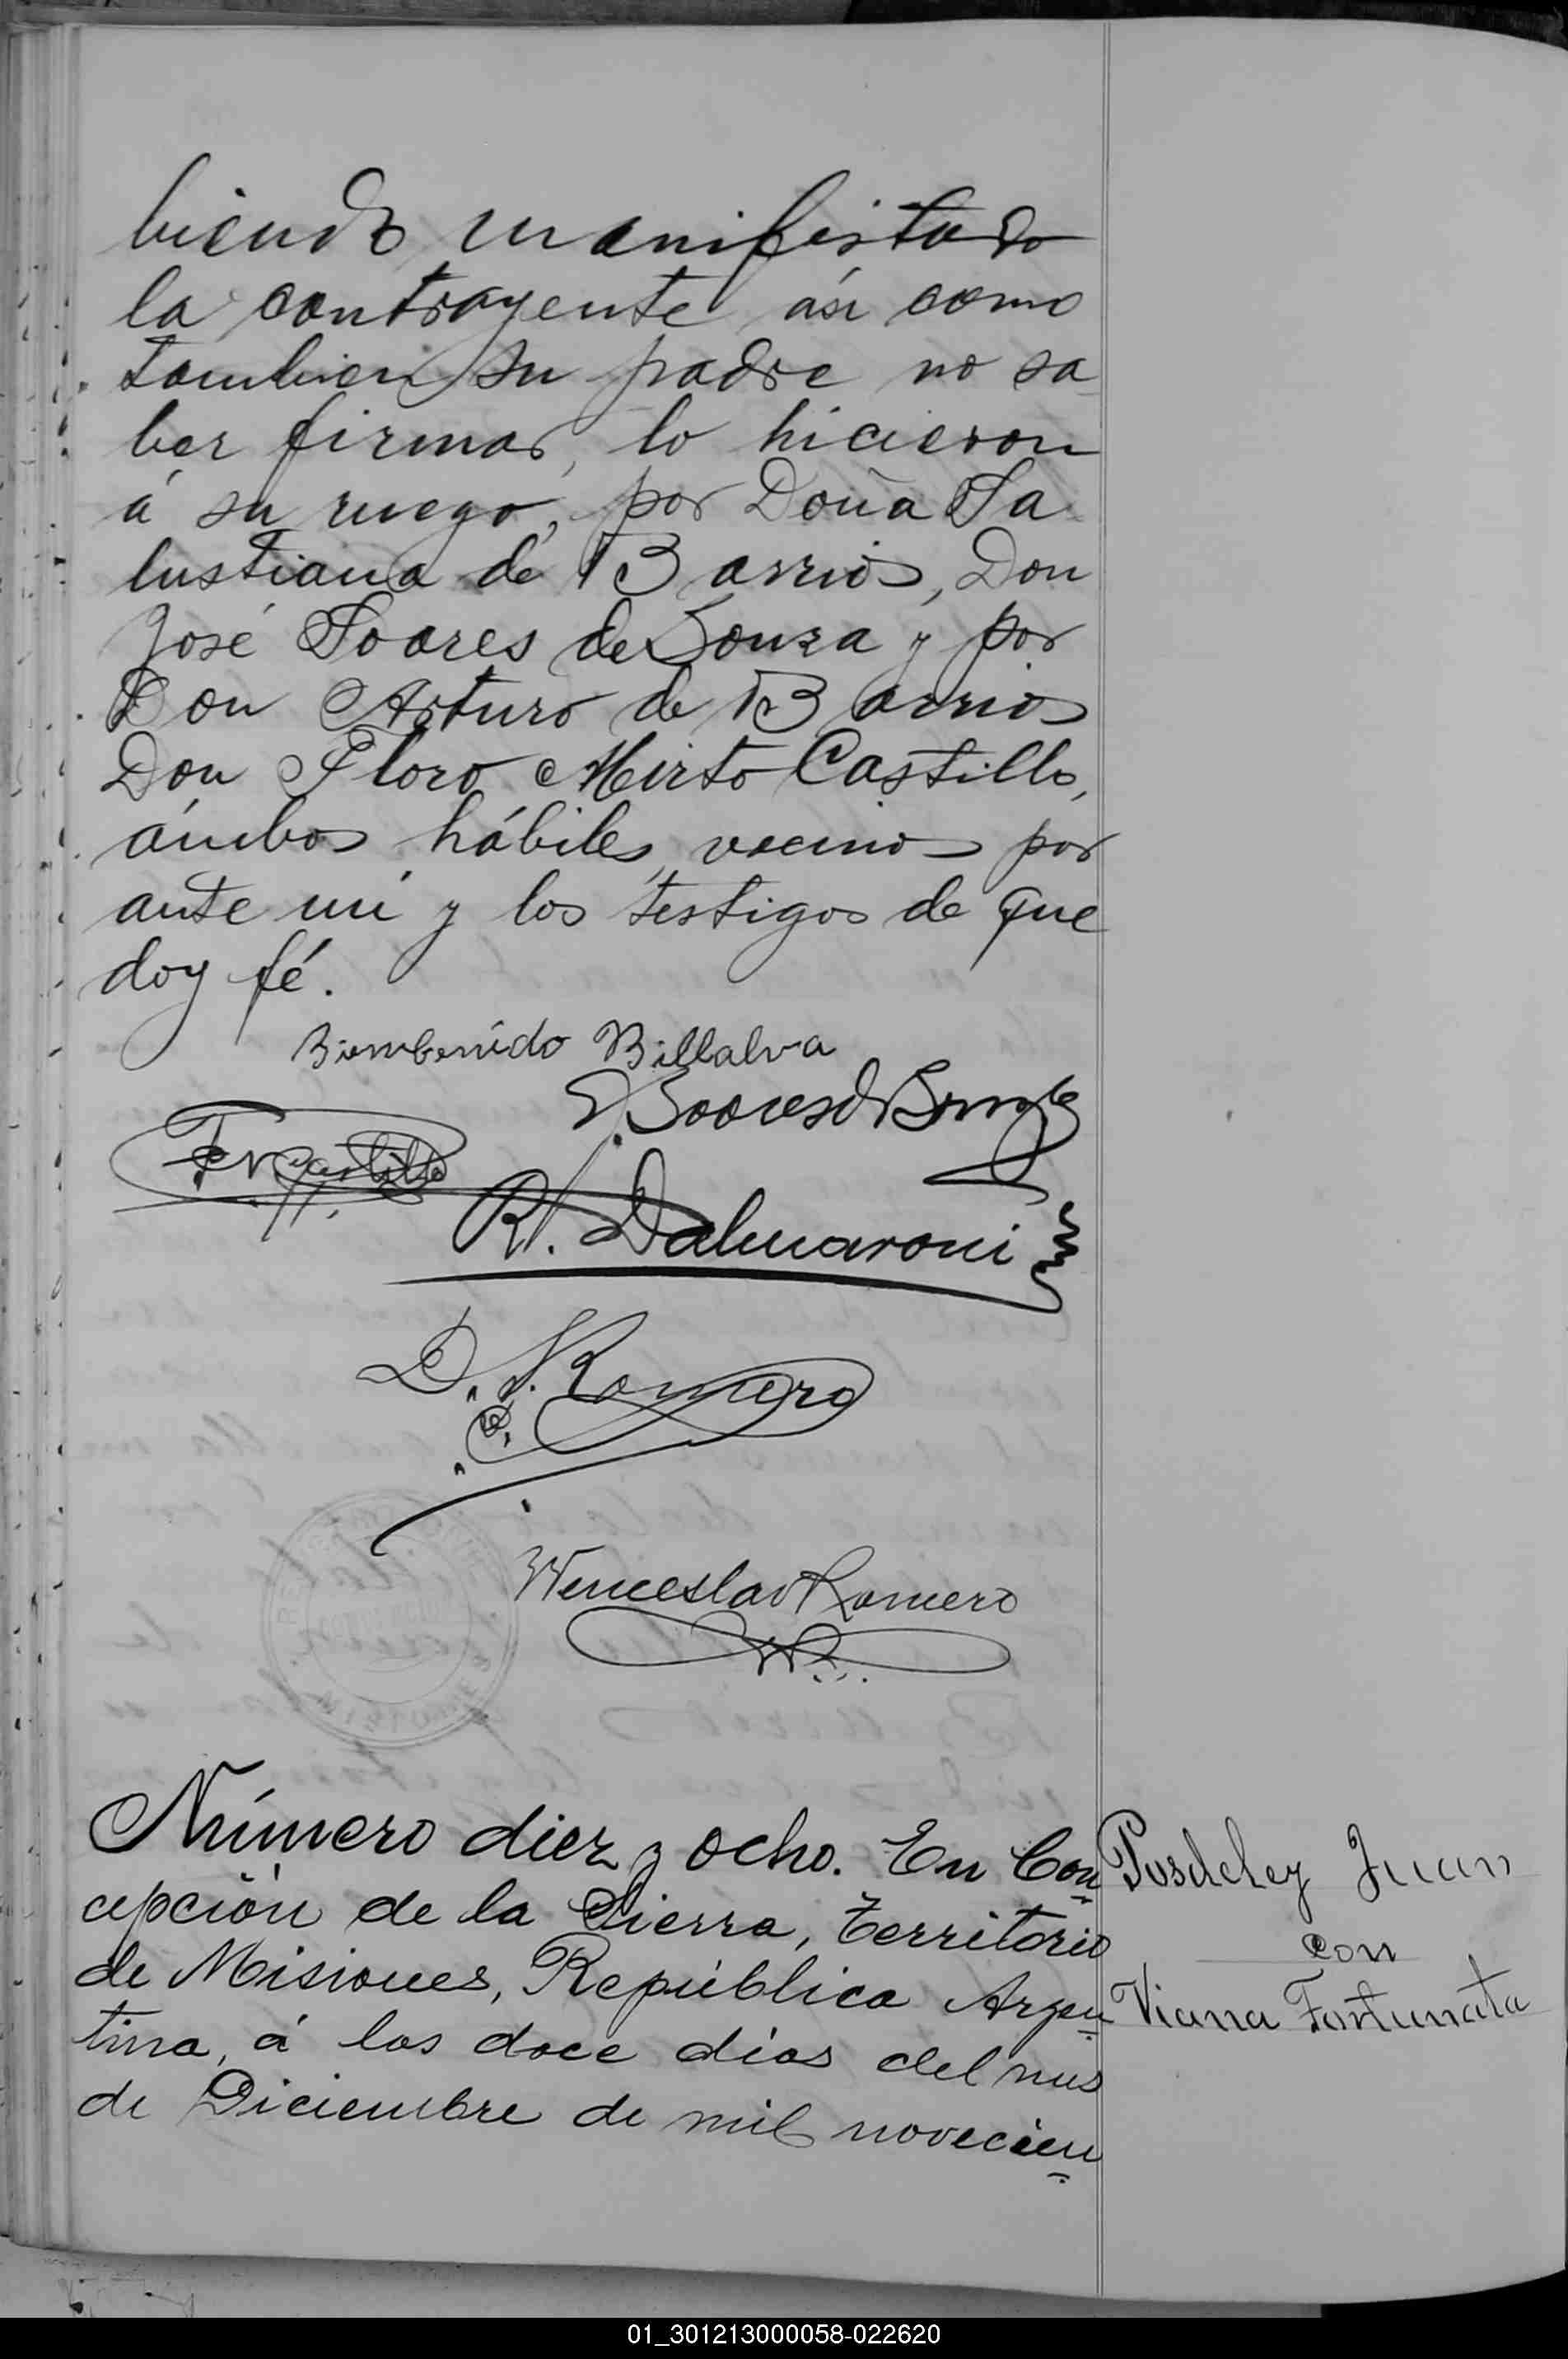 biendo manifestado
la contrayente así como
tambien su padre no sa
ber firmar, lo hicieron
á su ruego, por Doña Sa
lustiana de Barrios, Don
José Soares de Souza y por
Don Arturo de Barrios
Don Floro Mirto Castillo,
ámbos hábiles, vecinos por
ante mi y los testigos de que
doy fé.
Biembenido Billalva
J. Soares d Souza
F M Castillo
R. Dalmaroni
D. J. Romero
Wenceslao Romero
WR.
Número diez y ocho. En Con
cepción de la Sierra, Territorio
de Misiones, República Argen
tina, á los doce dias del mes
de Diciembre de mil novecien
Posdeley Juan
con
Viana Fortunata
01_301213000058-022620